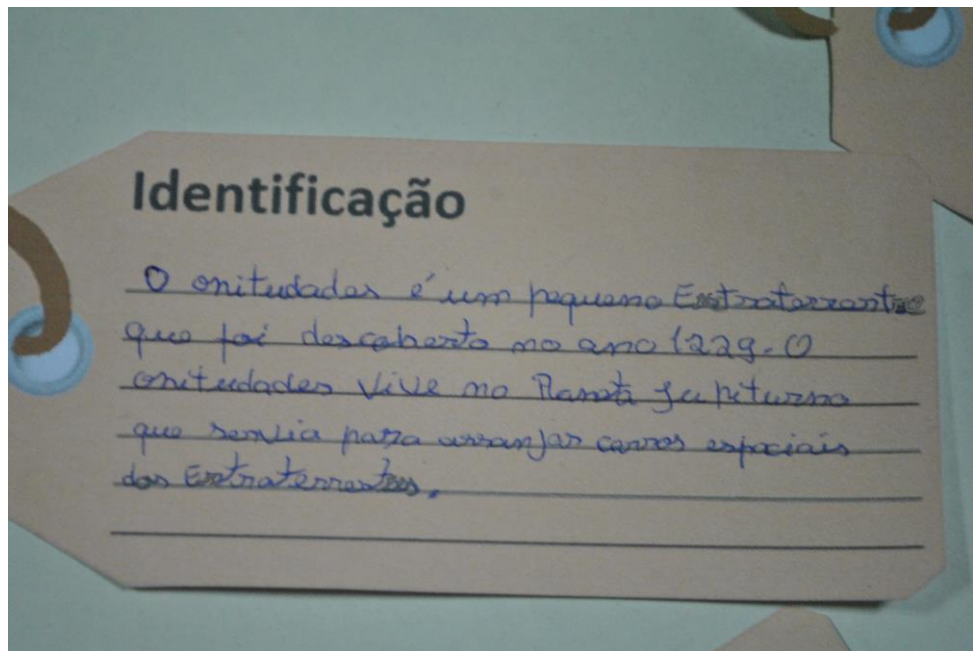 Identificação
O onitudades é um pequeno Extraterrestre
que foi descoberto no ano 1229. O
onitudades Vive no Planeta Jupiturno
que servia para arranjar carros espaciais
dos Extraterrestres.